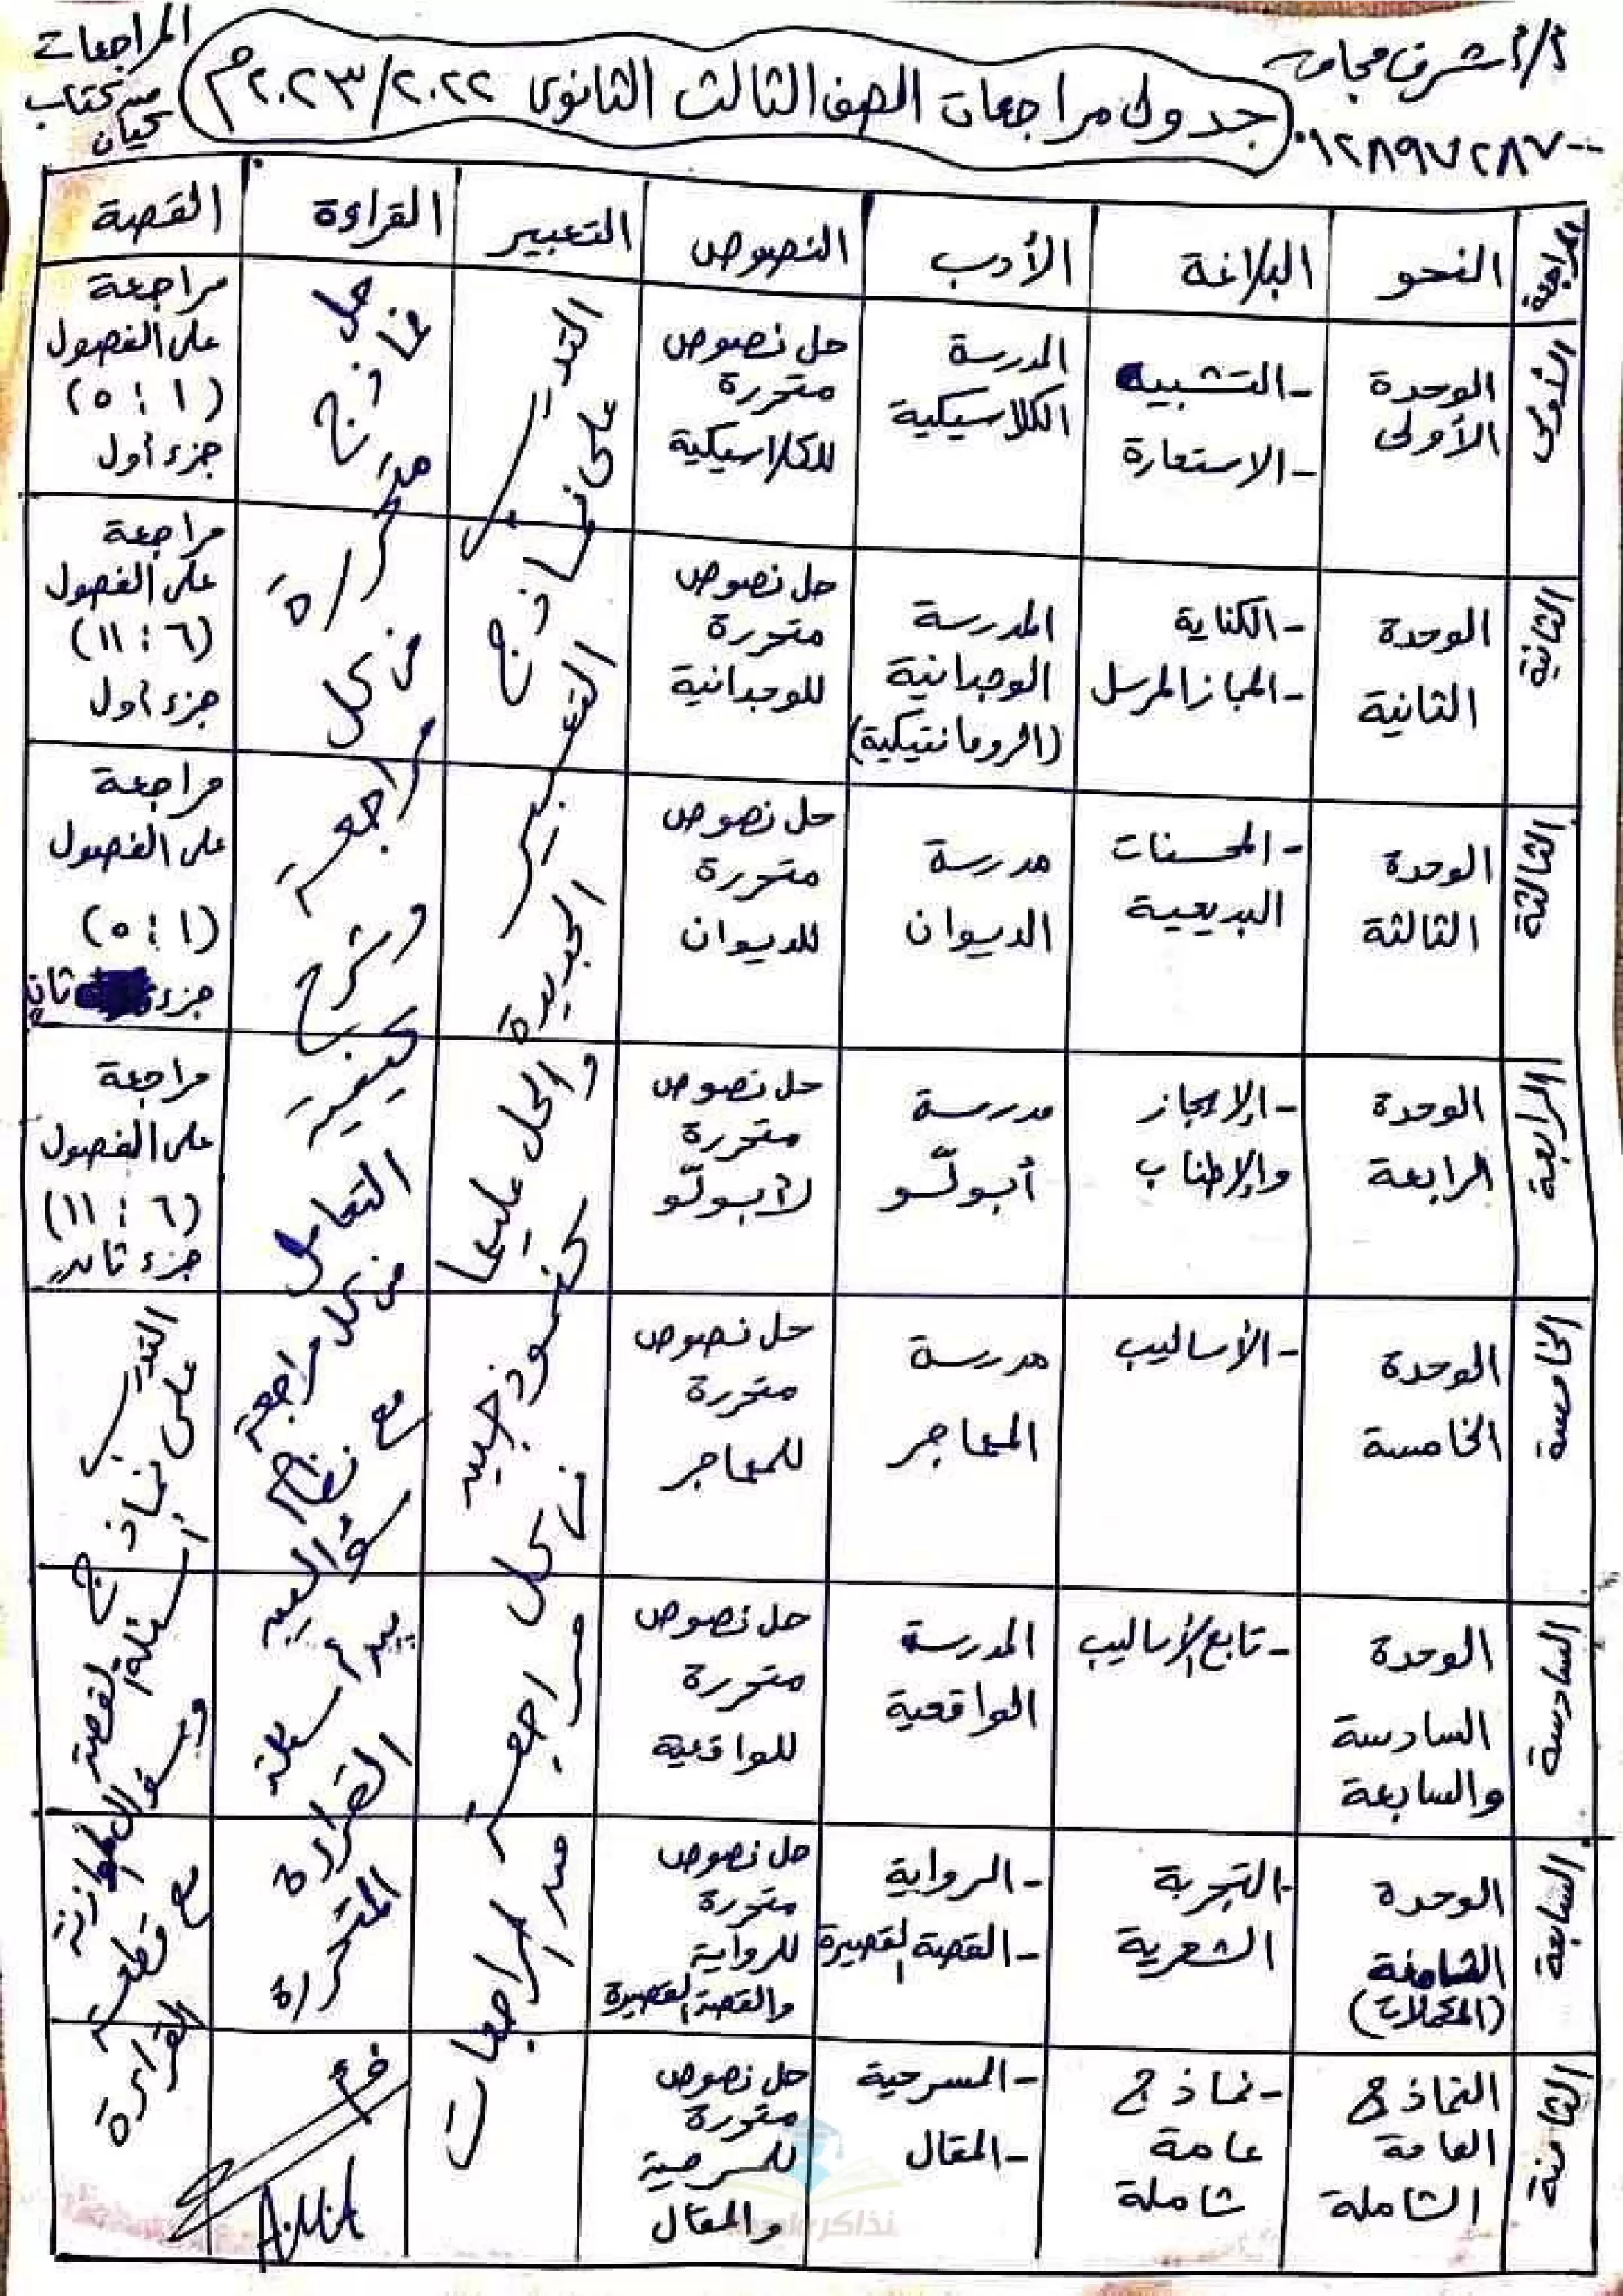 أ/أشرف مجاهد
٠١٢٨٩٧٢٨٧٠٠
جدول مراجعات الصف الثالث الثانوى ٢٠٢٢/٢٠٢٣م
المراجعات
من كتاب
كيان
المراجعة
النحو
البلاغة
الأدب
النصوص
التعبير
القراءة
القصة
الأولى
الوحدة
الأولى
-التشبيه
-الاستعارة
المدرسة
الكلاسيكية
حل نصوص
متحررة
للكلاسيكية
مراجعة
على الفصول
(١ : ٥)
جزء أول
الثانية
الوحدة
الثانية
-الكناية
-المجاز المرسل
المدرسة
الوجدانية
(الرومانتيكية)
حل نصوص
متحررة
للوجدانية
مراجعة
على الفصول
(٦ : ١١)
جزء أول
الثالثة
الوحدة
الثالثة
-المحسنات
البديعية
مدرسة
الديوان
حل نصوص
متحررة
للديوان
مراجعة
على الفصول
(١ : ٥)
جزء ثانٍ
الرابعة
الوحدة
الرابعة
-الإيجاز
والإطناب
مدرسة
أبولّو
حل نصوص
متحررة
لأبولّو
مراجعة
على الفصول
(٦ : ١١)
جزء ثانٍ
الخامسة
الوحدة
الخامسة
-الأساليب
مدرسة
المهاجر
حل نصوص
متحررة
للمهاجر
السادسة
الوحدة
السادسة
والسابعة
-تابع الأساليب
المدرسة
الواقعية
حل نصوص
متحررة
للواقعية
السابعة
الوحدة
الثامنة
(المكملات)
-التجربة
الشعرية
-الرواية
-القصة القصيرة
حل نصوص
متحررة
للرواية
والقصة القصيرة
الثامنة
النماذج
العامة
الشاملة
-نماذج
عامة
شاملة
-المسرحية
-المقال
حل نصوص
متحررة
للمسرحية
والمقال
التدريب
على نماذج
التعبير
الجديدة
والحل عليها
كنموذجين
فى كل
مراجعة
من المراجعات
حل
نماذج
متحررة
فى كل
مراجعة
وشرح
كيفية
التعامل
فى كل مراجعة
مع نظام
سؤالين
بيد أسئلة
القراءة
المتحررة
التدريب
على نماذج
أسئلة القصة
وسؤال الموازنة
مع قطعة
القراءة
نذاكر